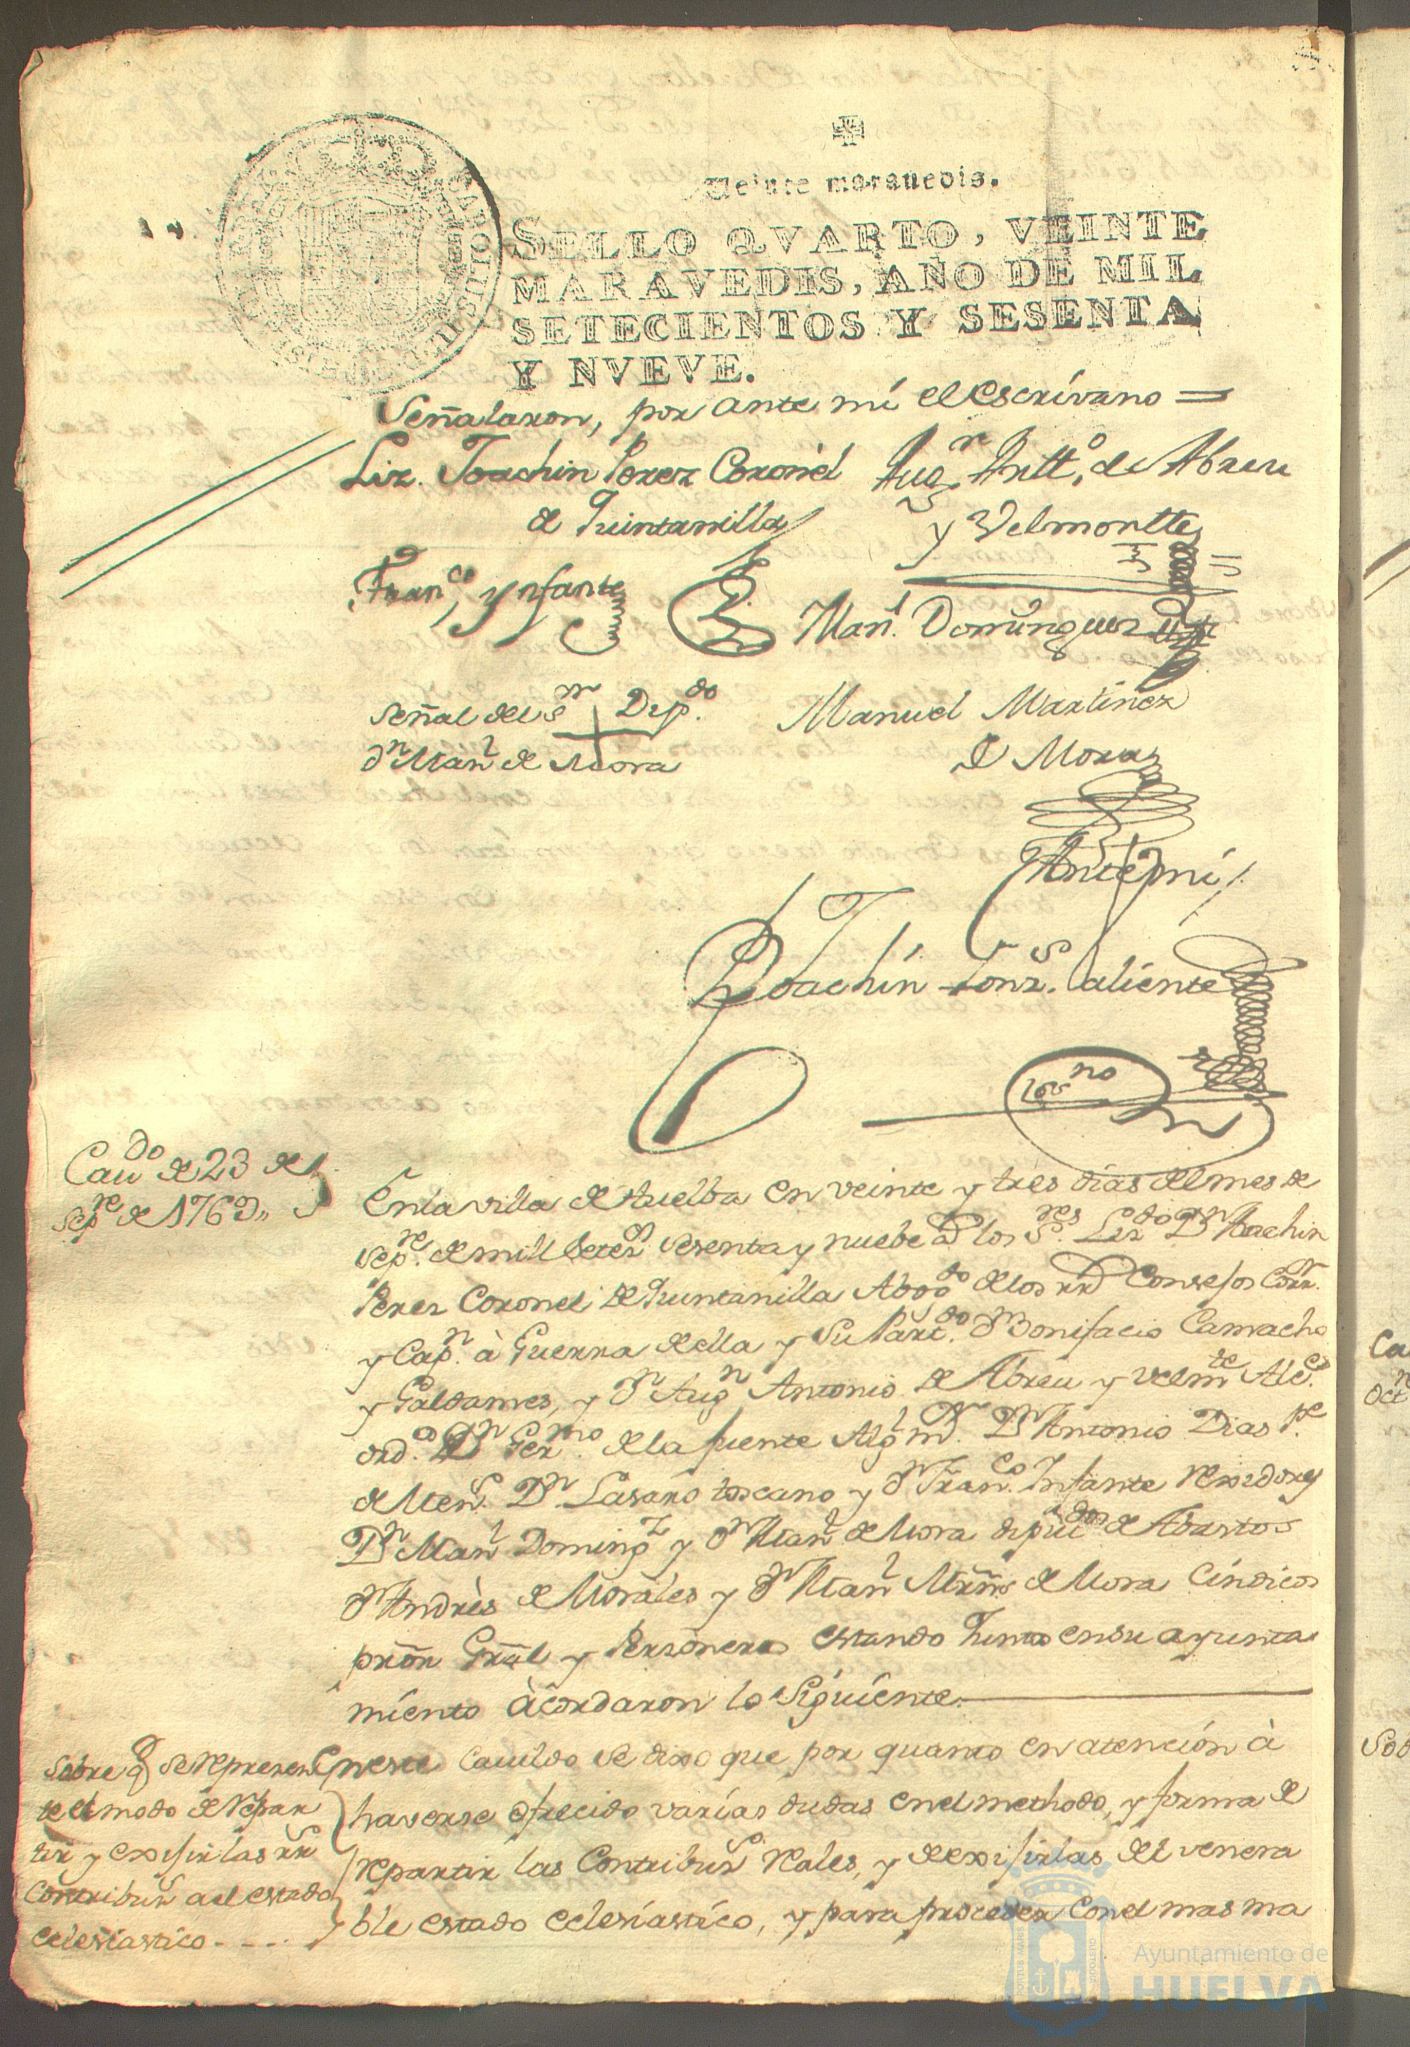 Veinte marauedis.
SELLO QVARTO, VEINTE
MARAVEDIS, AÑO DE MIL
SETECIENTOS Y SESENTA
Y NVEVE.
Señalaron, por ante mi el escrivano =
Liz. Joachin Perez Coronel
de Quintanilla
Augn. Antto. de Abreu
y Velmontte
Franco. Ynfante
Manl. Dominguez
Señal del Sr. Dipdo.
Dn Manl de Mora
Manuel Martinez
de Mora
Antemi
Joachin Gonzs. Valiente
essno
Cavdo de 23 de
Sepre de 1769,,
En la villa de Huelba en veinte y tres dias del mes de
Sepre. de mill setez. sesenta y nuebe as los Sres. Lizdo Dn Joachin
Perez Coronel de Quintanilla Abogdo de los rrs Consejos Corr.
y Capn. à Guerra de ella y Su Partdo. Dn Bonifacio Camacho
y Galdames, y Dn Augn Antonio de Abreu y velmte Alces.
ords. Dn Germo. de la fuente Algl mr. Dn Antonio Dias Pe
de Menz. Dn Lasaro toscano y Dn Franco. Infante Rexidores
Dn Manl Domingz y Dn Manl de Mora diputados de Abastos
Dn Andrès de Morales y Dn Manl Mrñs de Mora Cindicos
prõr Grãl y Personero estando Juntos en su ayunta
miento àcordaron lo Siguiente.
Sobre q se represen
te el modo de repar
tir y exisir las rrs
Contribus al estado
eclesiastico
En este Cavildo se dixo que por quanto en atencion à
haverse ofrecido varias dudas en el methodo, y forma de
repartir las Contribus Reales, y de exisirlas del venera
ble estado eclesiastico, y para proceder con el mas ma
Ca
Oct
Sob
Ayuntamiento de
HUELVA